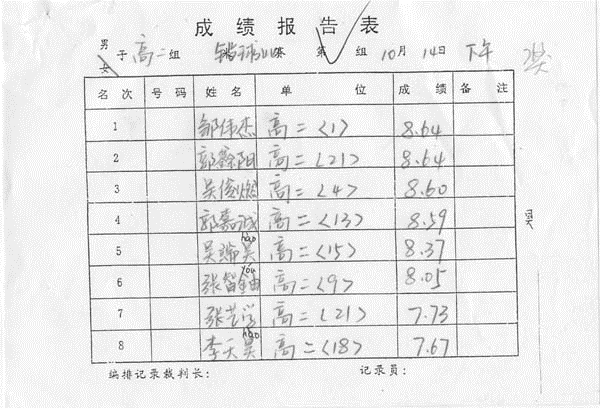 成绩报告表
男女子 高二 组 铅球 赛 第 组 10月14日 下午
名次 号码 姓名 单位 成绩 备注
1 邹伟杰 高二<1> 8.64
2 郭 阳 高二<21> 8.64
3 吴俊燃 高二<4> 8.60
4 郭嘉诚 高二<13> 8.59
hao
5 吴端昊 高二<15> 8.37
you
6 张智铀 高二<9> 8.05
7 张艺 高二<21> 7.73
hao
8 李天昊 高二<18> 7.67
编排记录裁判长: 记录员: